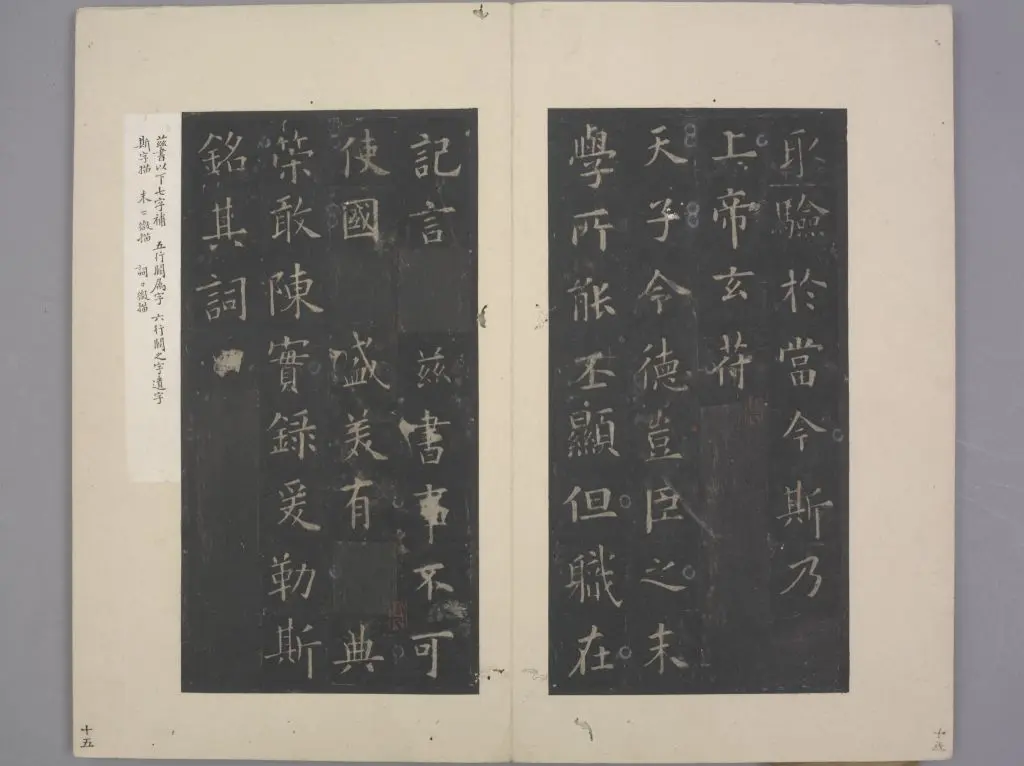 取驗於當今斯乃
上帝玄苻
天子令德豈臣之末
學所能丕顯但職在
記言 茲書事不可
使國 盛美有 典
策敢陳實録爰勒斯
銘其詞
茲書以下七字補 五行闕屬字 六行闕之字遺字
斯字描 末〻微描 詞〻微描
十五